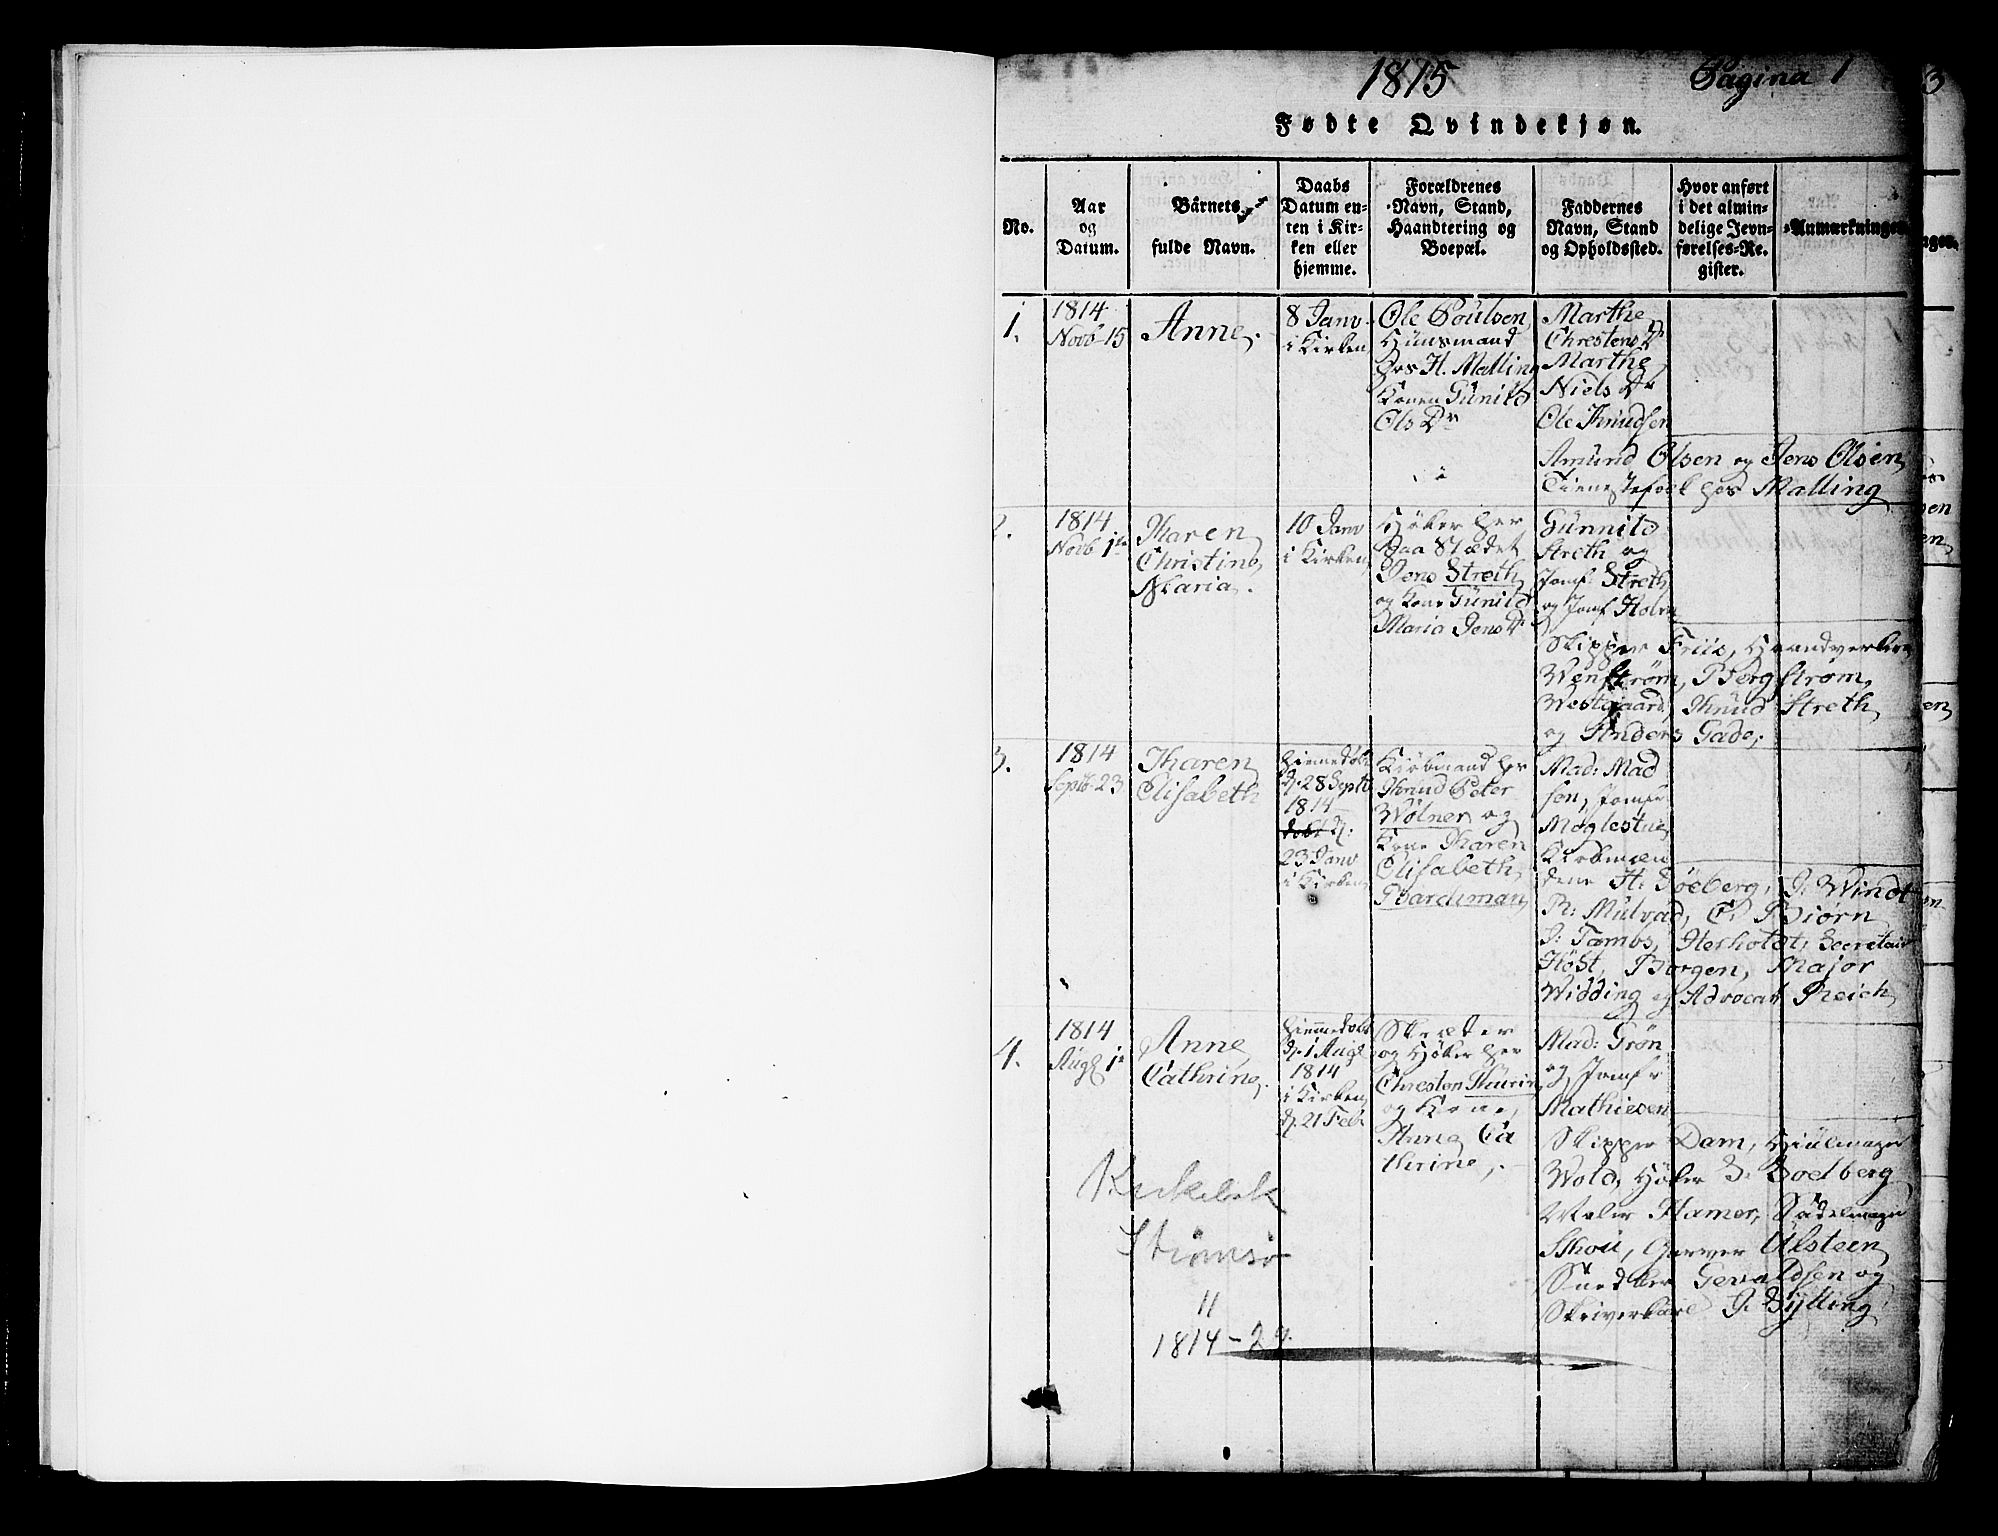 1815
Pagina 1
3
Fødte Qvindekjøn.
No.
Aar
og
Datum.
Bârnets
fulde Navn.
Daabs
Datum en-
ten i Kir-
ken eller
hjemme.
Forældrenes
Navn, Stand,
Haandtering og
Boepæl.
Faddernes
Navn, Stand
og Opholdssted.
Hvor anført
i det almin-
delige Jevn-
førelses-Re-
gister.
Anmærkninger.
1.
1814
Novb 15
Anne,
8 Janv
i Kirken
Ole Poulsen,
Huusmand
hos H. Malling
Konen Günild
Ols Dr
Marthe
Chrestens Dr
Marthe
Niels Dr
Ole Knudsen
Amund Olsen og Jens Olsen
Tienestefolk hos Malling
2.
1814
Novb 1te
Karen
Christine,
Maria.
10 Janv
i Kirken
Høker her
paa Stædet
Jens Streth
og Kone Günild
Maria Jens Dr
Günnild
Streth og
Jomf: Streth
og Jomf Holm
Skipper Friis, Haandverkere
Wenstrøm, Bergstrøm,
Westgaard, Knud Streth
og Anders Gade,
3.
1814
Septb 23
Karen
Elisabeth
hiemmedøbt
d. 28 Septb
1814
d.
23 Janv
i Kirken
Kiøbmand her
Knud Peter
Wølner og
Kone Karen
Elisabeth
Boardeman
Mad: Mad
sen, Jomfr
Møglestue
Kiøbmæn
dene H: Søeberg, J: Windt
R: Mulvad, C. Biørn
J: Tambs, Herholdt, Secretair
Høst, Borgen, Major
Widding og Advocat Reich
4.
1814
Augl 1te
Anne
Cathrine.
hiemmedøbt
d. 1 Augl
1814
i Kirken
d. 21 Feb
Skræder
og Høker her
Chresten Thurin
og Kone,
Anne Ca
thrine,
Mad: Grøn
og Jomfr
Mathiesen
Skipper Dam, Hiulmager
Wold, Høker S. Boelberg
Maler Hamer, Sadelmager
Skou, Garver Ulsteen
Snedker Gevaldsen og
Skriverkarl J. Gylling
Kirkebok
Strømsø
11
1814-29.